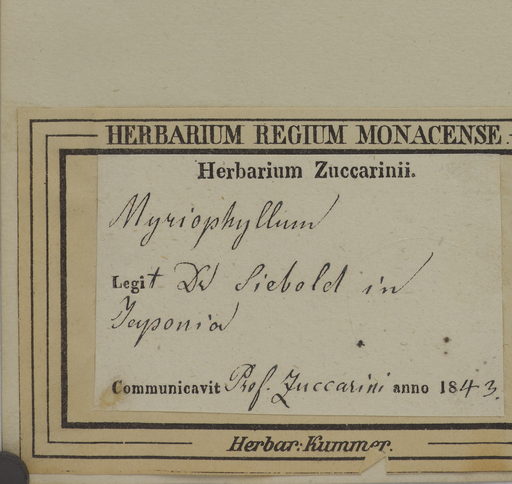 HERBARIUM REGIUM MONACENSE.
Herbarium Zuccarinii.
Myriophyllum
Legit Dr Siebold in
Japonia
Communicavit Prof. Zuccarini anno 1843.
Herbar: Kummer.